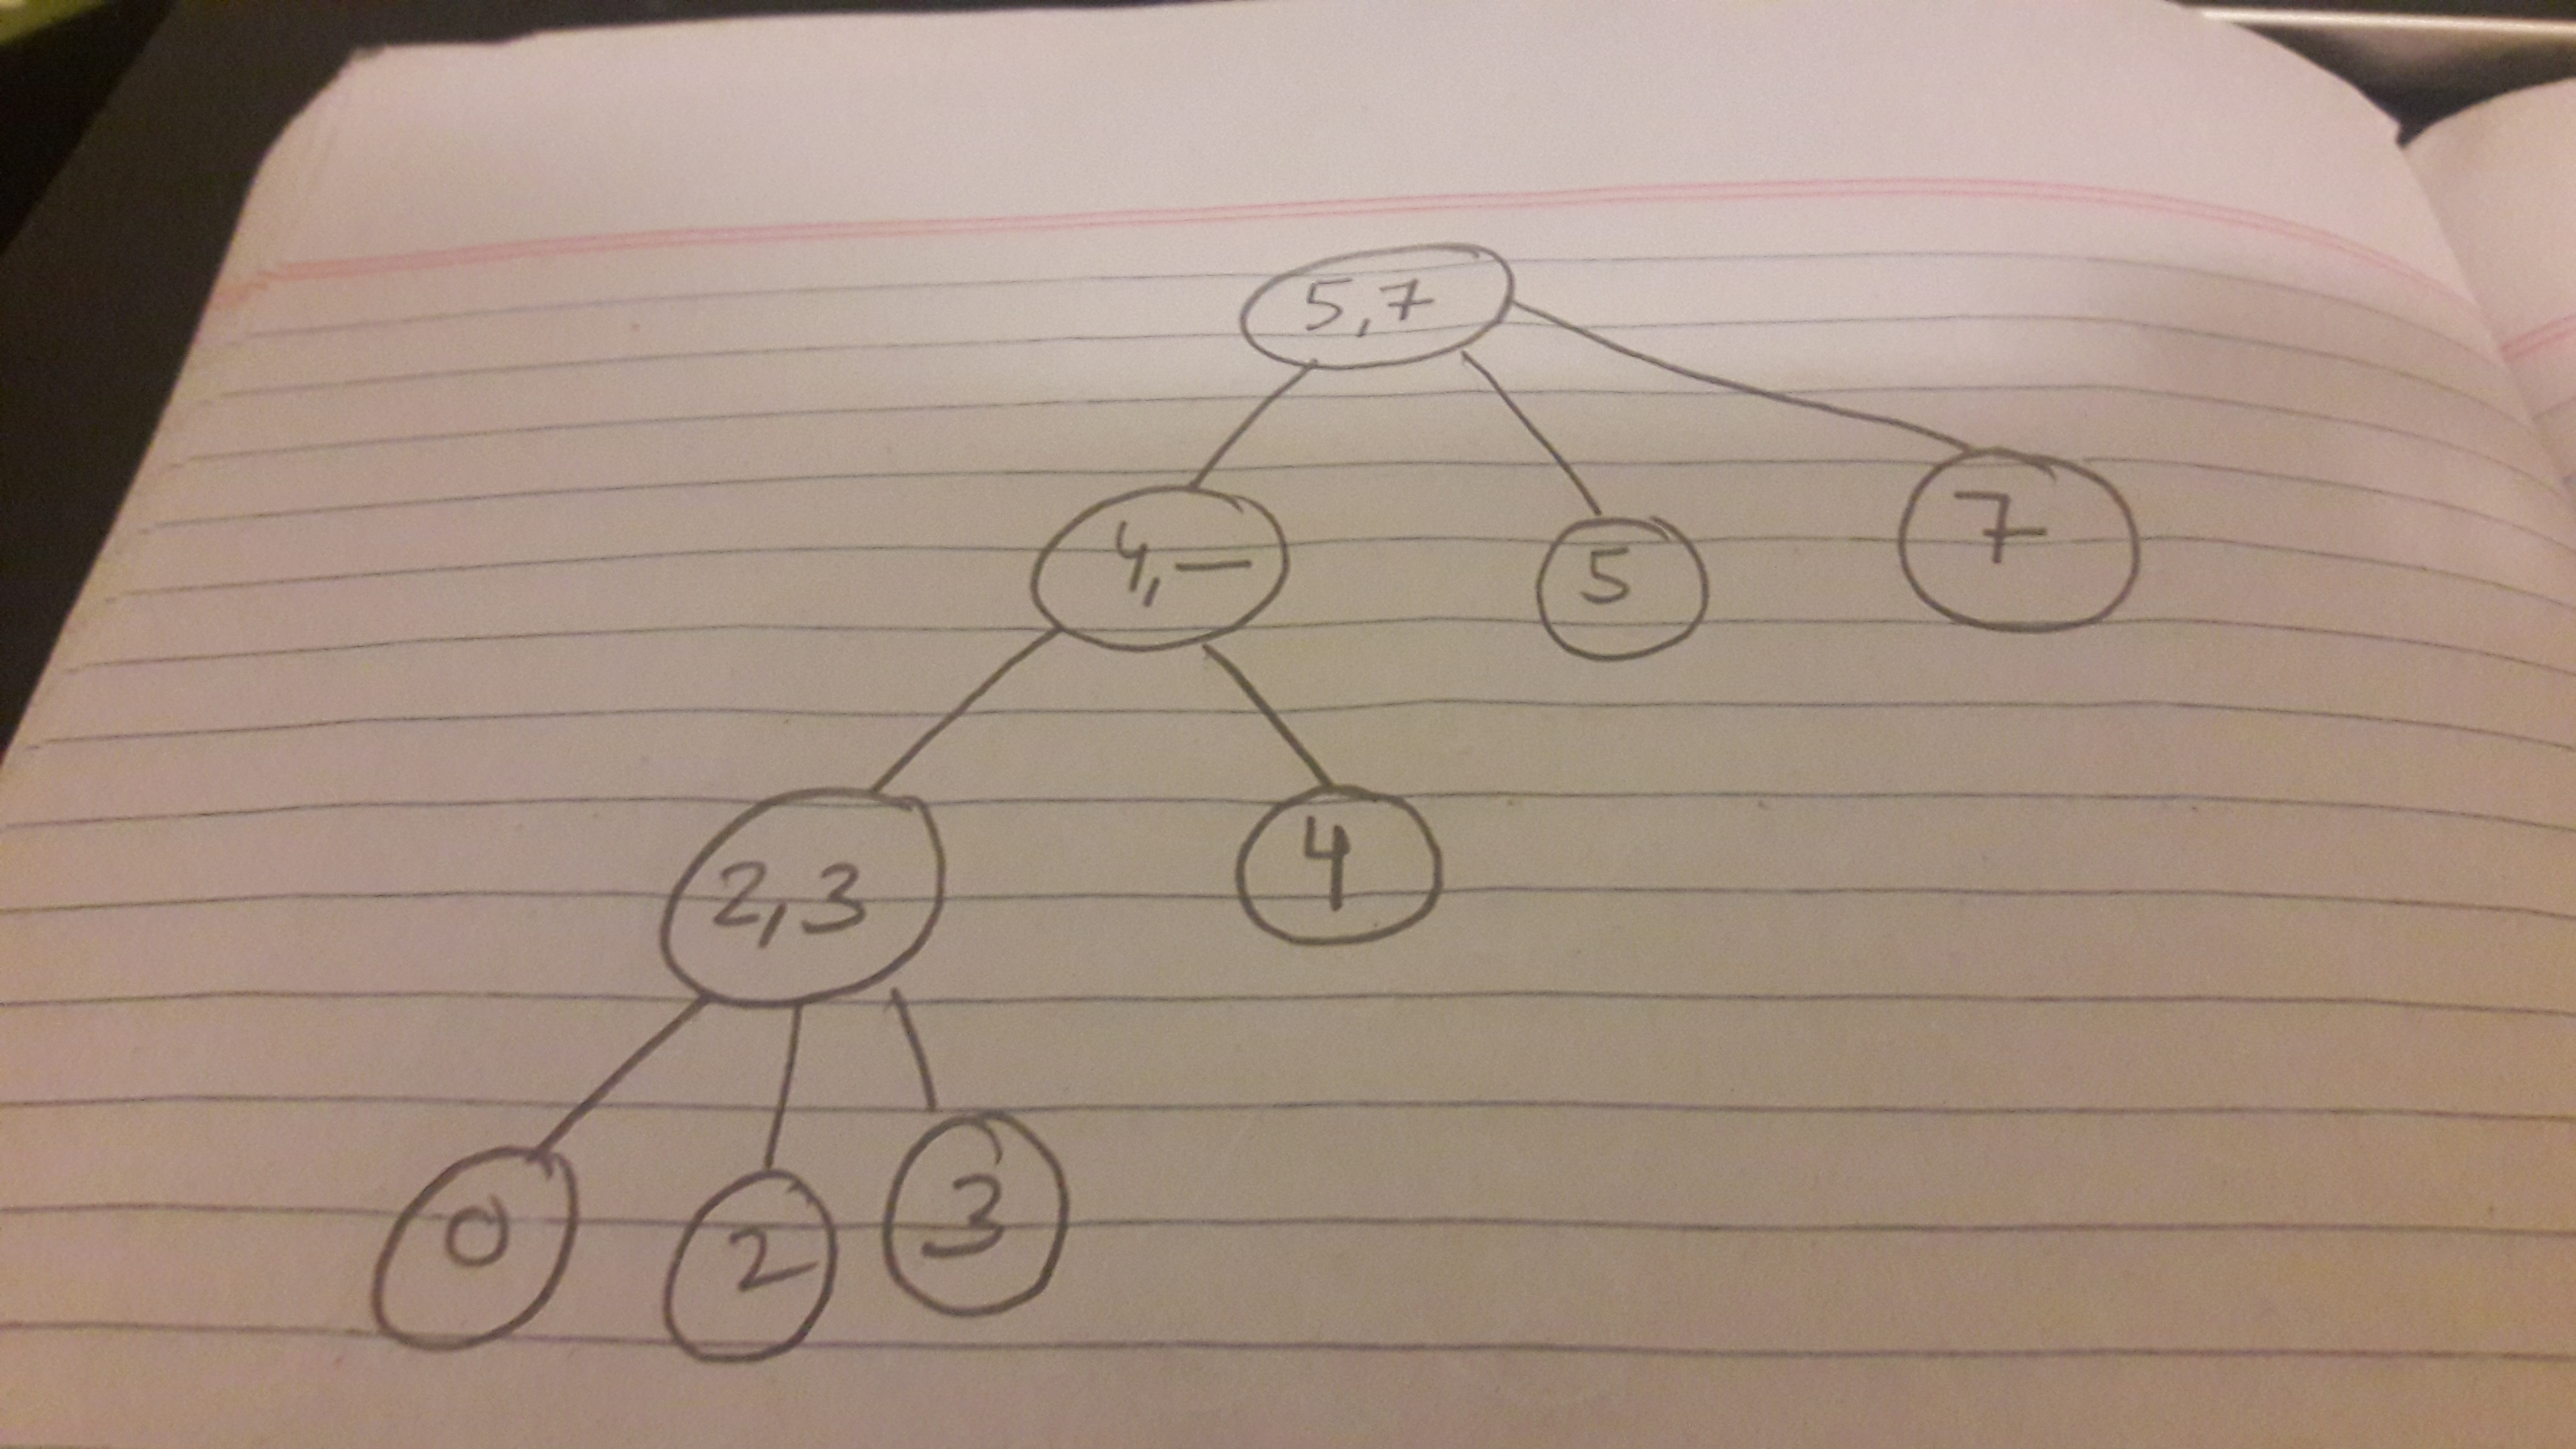 5,7
4,— 5 7
2,3 4
0 2 3